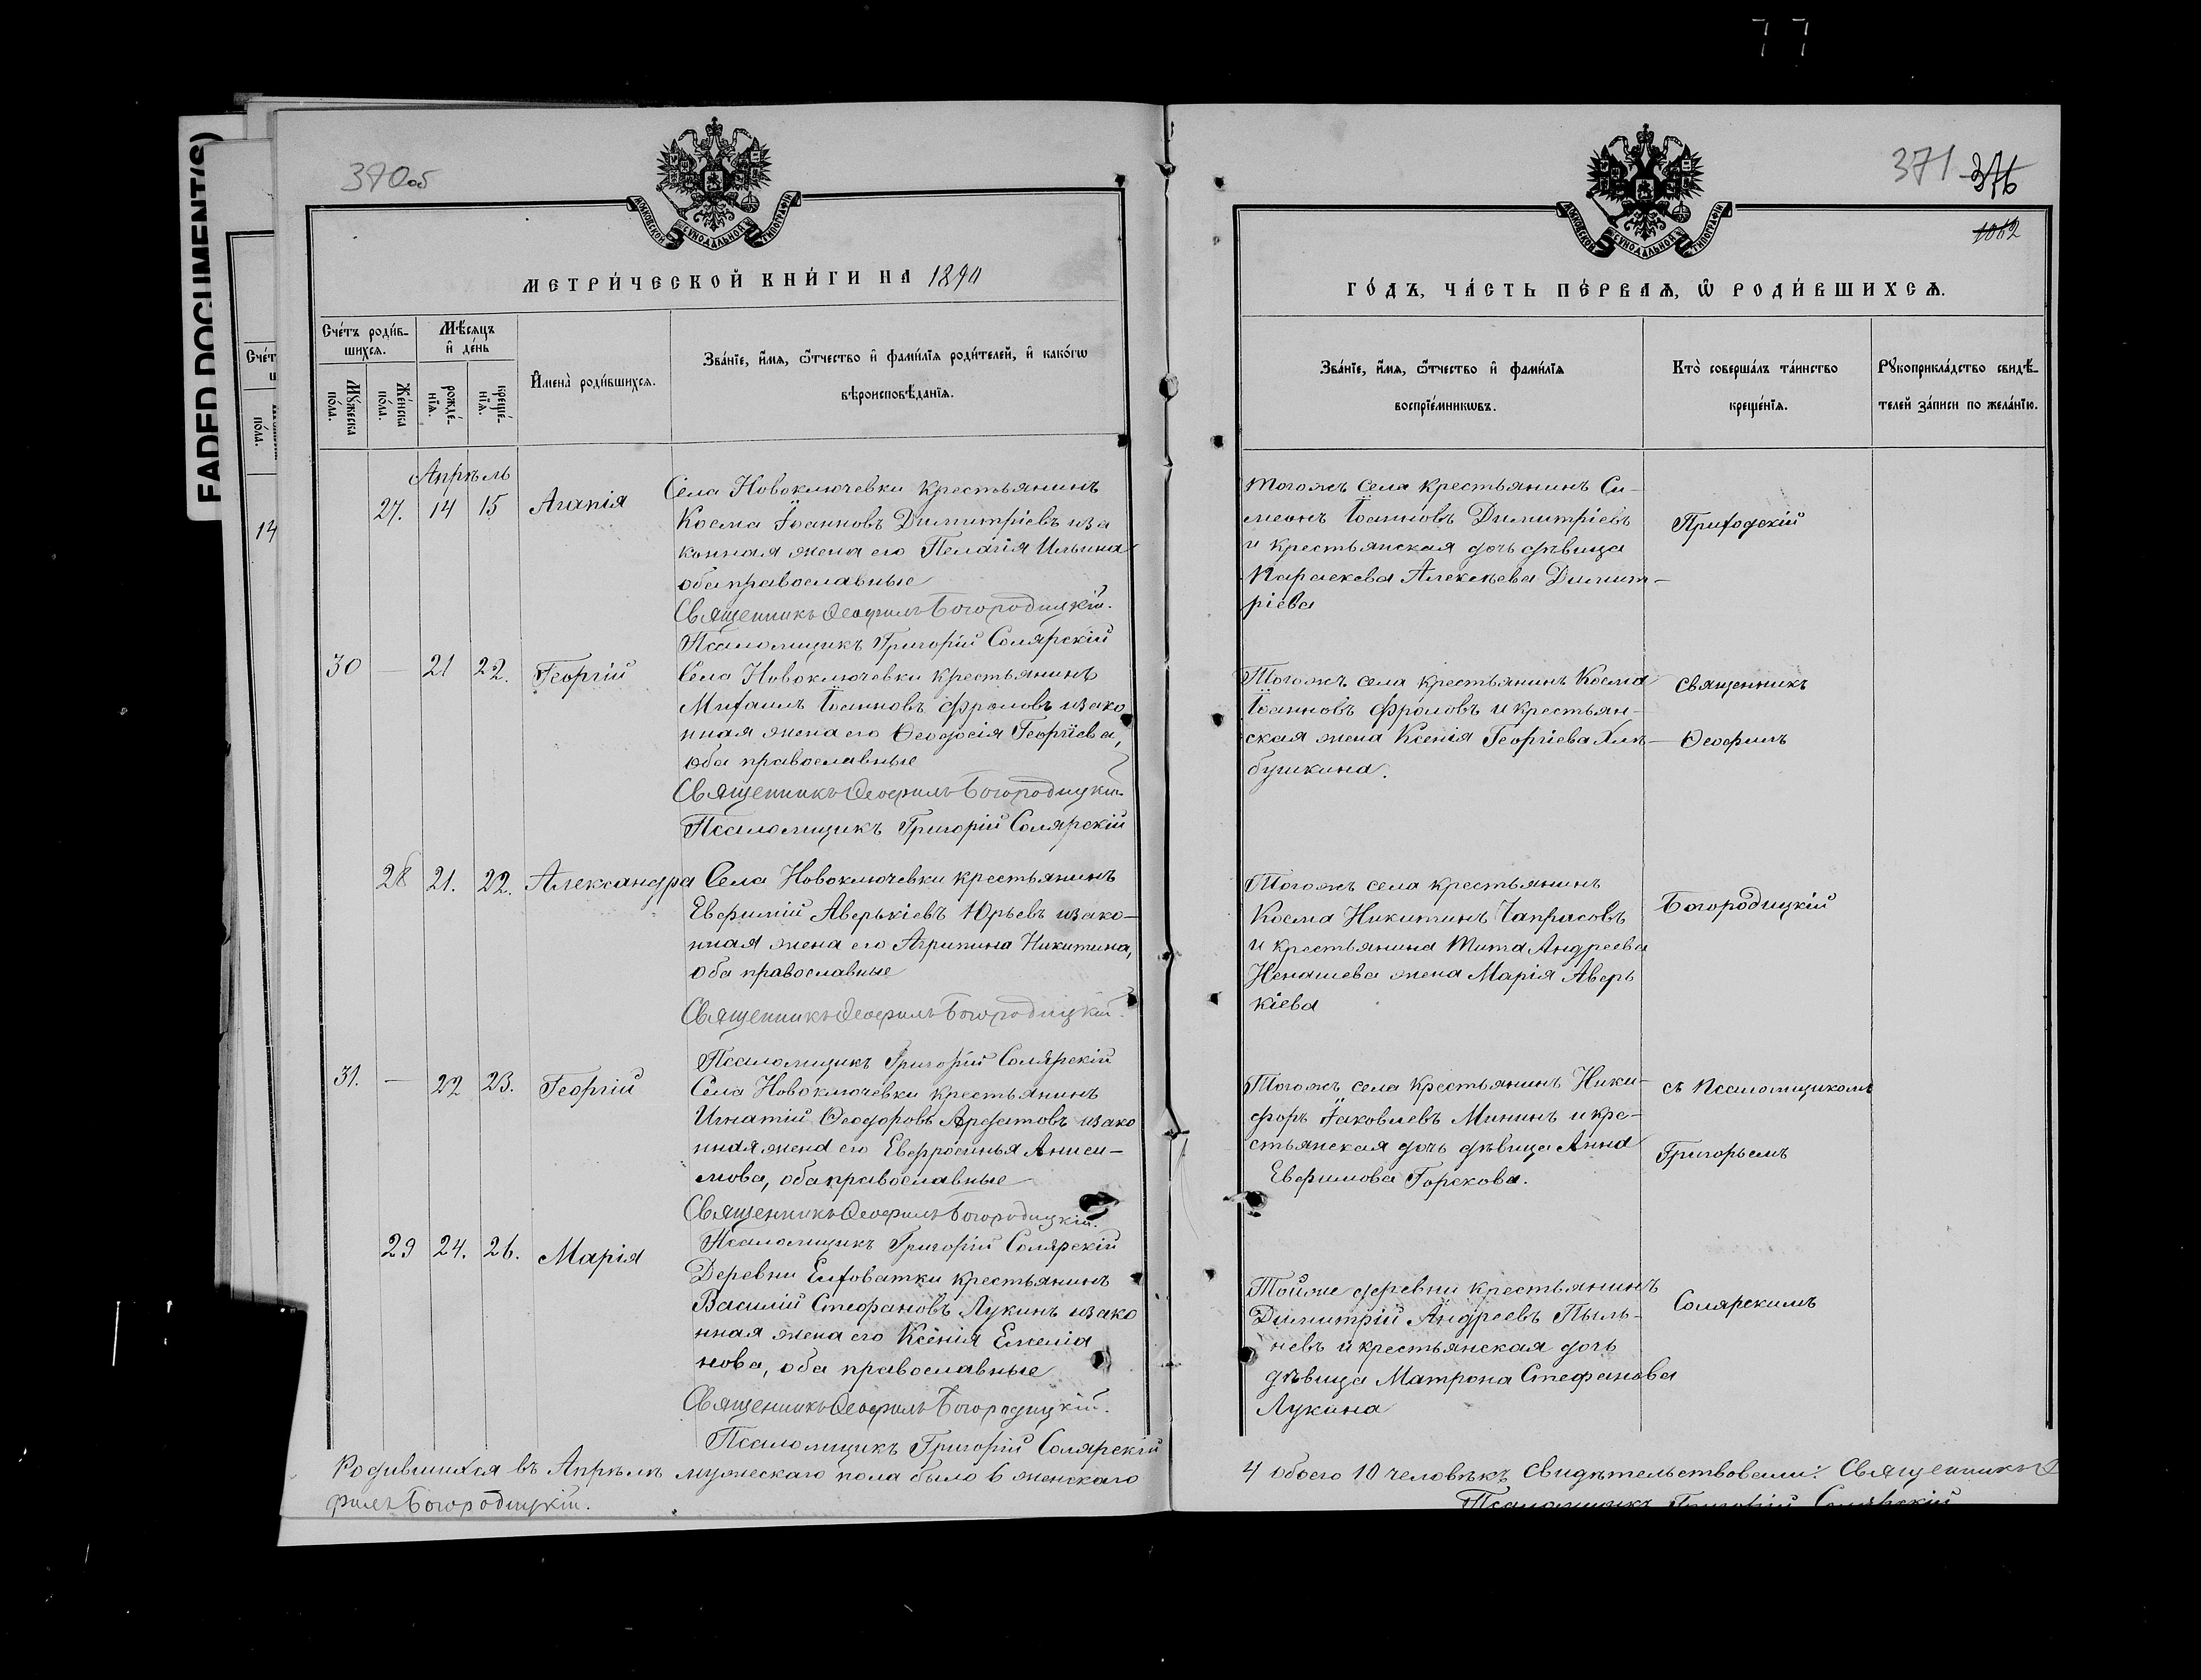 FADED DOCUMENT(S)
370об
МОСКОВСКОЙ СѴНОДАЛЬНОЙ ТИПОГРАФІИ
МЕТРИ́ЧЕСКОЙ КНИ́ГИ НА 1890
Сче́тъ роди́в-
шихсѧ.
Мѣ́сѧцъ
и҆ де́нь
Мꙋ́жеска
по́ла.
Же́нска
по́ла.
рожде́-
нїѧ.
креще́-
нїѧ.
И҆мена̀ роди́вшихсѧ.
Зва́нїе, и҆́мѧ, ѻ҆́тчество и҆ фами́лїѧ роди́телей, и҆ како́гѡ
вѣроисповѣ́данїѧ.
Апрѣль
27. 14 15 Агапія
Села Новоключевки крестьянинъ
Косма Іоанновъ Димитріевъ и за
конная жена его Пелагія Ильина
оба православные
Священникъ Ѳеофилъ Богородицкій.
Псаломщикъ Григорій Солярскій
30 — 21 22. Георгій
Села Новоключевки крестьянинъ
Михаилъ Іоанновъ Фроловъ и зако
нная жена его Ѳеодосія Георгіева,
оба православные
Священникъ Ѳеофилъ Богородицкій
Псаломщикъ Григорій Солярскій
28 21. 22. Александра
Села Новоключевки крестьянинъ
Евфимій Аверькіевъ Юрьевъ и зако-
нная жена его Агрипина Никитина,
оба православные
Священникъ Ѳеофилъ Богородицкій.
Псаломщикъ Григорій Солярскій
31. — 22 23. Георгій
Села Новоключевки крестьянинъ
Игнатій Ѳеодоровъ Ардатовъ и зако
нная жена его Евфросинья Аниси-
мова, оба православные
Священникъ Ѳеофилъ Богородицкій.
Псаломщикъ Григорій Солярскій
29 24. 26. Марія
Деревни Елховатки крестьянинъ
Василій Стефановъ Лукинъ и зако
нная жена его Ксенія Емеліа
нова, оба православные
Священникъ Ѳеофилъ Богородицкій.
Псаломщикъ Григорій Солярскій
Родившихся въ Апрѣлѣ мужескаго пола было 6 женскаго
филъ Богородицкій.
371 376
1062
МОСКОВСКОЙ СѴНОДАЛЬНОЙ ТИПОГРАФІИ
ГО́ДЪ, ЧА́СТЬ ПЕ́РВАѦ, Ѡ҆ РОДИ́ВШИХСѦ.
Зва́нїе, и҆́мѧ, ѻ҆́тчество и҆ фами́лїѧ
воспрїе́мникѡвъ.
Кто̀ соверша́лъ та́инство
креще́нїѧ.
Рꙋкоприкла́дство свидѣ́-
телей за́писи по жела́нїю.
Тогожъ села крестьянинъ Си-
меонъ Іоанновъ Димитріевъ
и крестьянская дочь дѣвица
Параскева Алексѣева Димит-
ріева
Приходскій
Тогожъ села крестьянинъ Косма
Іоанновъ Фроловъ и крестьян-
ская жена Ксенія Георгіева Хлѣ-
бушкина.
Священникъ
Ѳеофилъ
Тогожъ села крестьянинъ
Косма Никитинъ Чапрасовъ
и крестьянина Тита Андреева
Ненашева жена Марія Аверь
кіева
Богородицкій
Тогожъ села крестьянинъ Ники-
форъ Іаковлевъ Мининъ и кре-
стьянская дочь дѣвица Анна
Евфимова Горскова.
съ Псаломщикомъ
Григорьемъ
Тойже деревни крестьянинъ
Димитрій Андреевъ Пыль-
невъ и крестьянская дочь
дѣвица Матрона Стефанова
Лукина
Солярскимъ
4 обоего 10 человѣкъ Свидѣтельствовали: Священникъ Ѳ
Псаломщикъ Григорій Солярскій